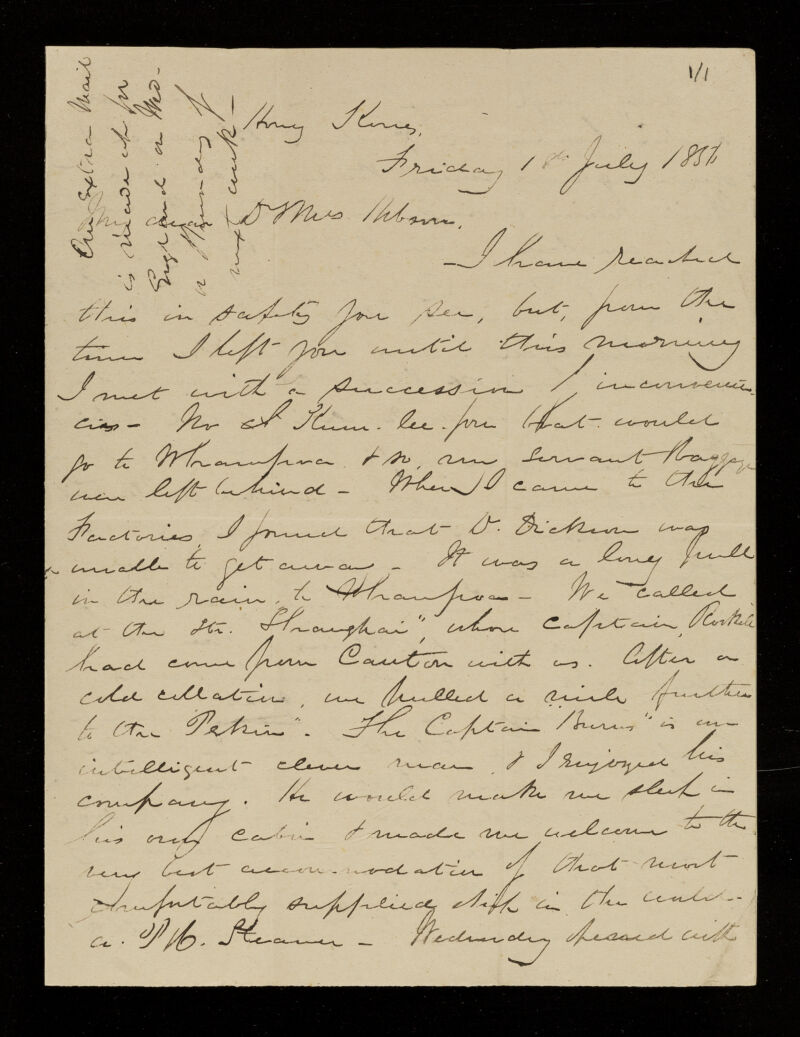 1/1
An Extra Mail
is made up for
England on Mo-
or Tuesday of
next week -
Hong Kong,
Friday 1st July 185
My dear Dr Mrs Hobson,
- I have reached
this in safety you see, but, from the
time I left you until this morning
I met with a succession of inconvenien-
cies - No at Kum-lee-fou that would
go to Whampoa & so my servant & baggage
were left behind - When I came to the
Factories, I found that Dr. Dickson was
unable to get away - It was a long pull
in the rain to Whampoa - We called
at the Str. Shanghai", whose captain
had come from Canton with us. After a
cold collation, we pulled a mile further
to the "Pekin". The Captain "Burns" is an
intelligent clever man & I enjoyed his
company. He would make me sleep in
his own cabin & made me welcome to the
very best accommodation of that most
comfortably supplied ship in the world -
a P & O. Steamer - Wednesday passed with